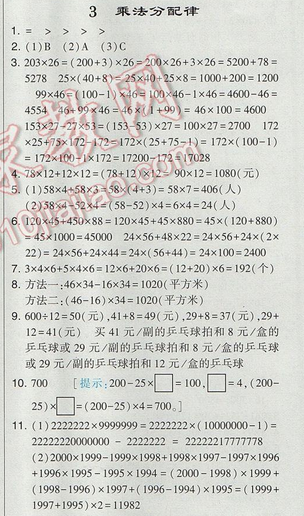 3 乘法分配律
1. = > > > >
2. (1)B (2)A (3)C
3. 203×26=(200+3)×26=200×26+3×26=5200+78=
5278 25×(40+8)=25×40+25×8=1000+200=1200
99×46=(100-1)×46=100×46-1×46=4600-46=
4554 46+99×46=46×(1+99)=46×100=4600
153×27-27×53=(153-53)×27=100×27=2700 172
×25+75×172-172=172×(25+75-1)=172×(100-1)
=172×100-1×172=17200-172=17028
4. 78×12+12×12=(78+12)×12=90×12=1080(元)
5. (1)58×4+58×3=58×(4+3)=58×7=406(人)
(2)58×4-52×4=(58-52)×4=6×4=24(人)
6. 120×45+450×88=120×45+45×880=45×(120+880)
=45×1000=45000 24×56+48×22=24×56+24×(2×
22)=24×56+24×44=24×(56+44)=24×100=2400
7. 3×4×6+5×4×6=12×6+20×6=(12+20)×6=192(个)
8. 方法一:46×34-16×34=1020(平方米)
方法二:(46-16)×34=1020(平方米)
9. 600÷12=50(元),41+8=49(元),29+8=37(元),29+
12=41(元) 买41元/副的乒乓球拍和8元/盒的
乒乓球或29元/副的乒乓球拍和8元/盒的乒乓
球或29元/副的乒乓球拍和12元/盒的乒乓球
10. 700 [提示:200-25×□=100,□=4,(200-
25)×□=(200-25)×4=700。]
11. (1)2222222×9999999=2222222×(10000000-1)=
22222220000000-2222222=22222217777778
(2)2000×1999-1999×1998+1998×1997-1997×1996
+1996×1995-1995×1994=(2000-1998)×1999+
(1998-1996)×1997+(1996-1994)×1995=(1999+
1997+1995)×2=11982